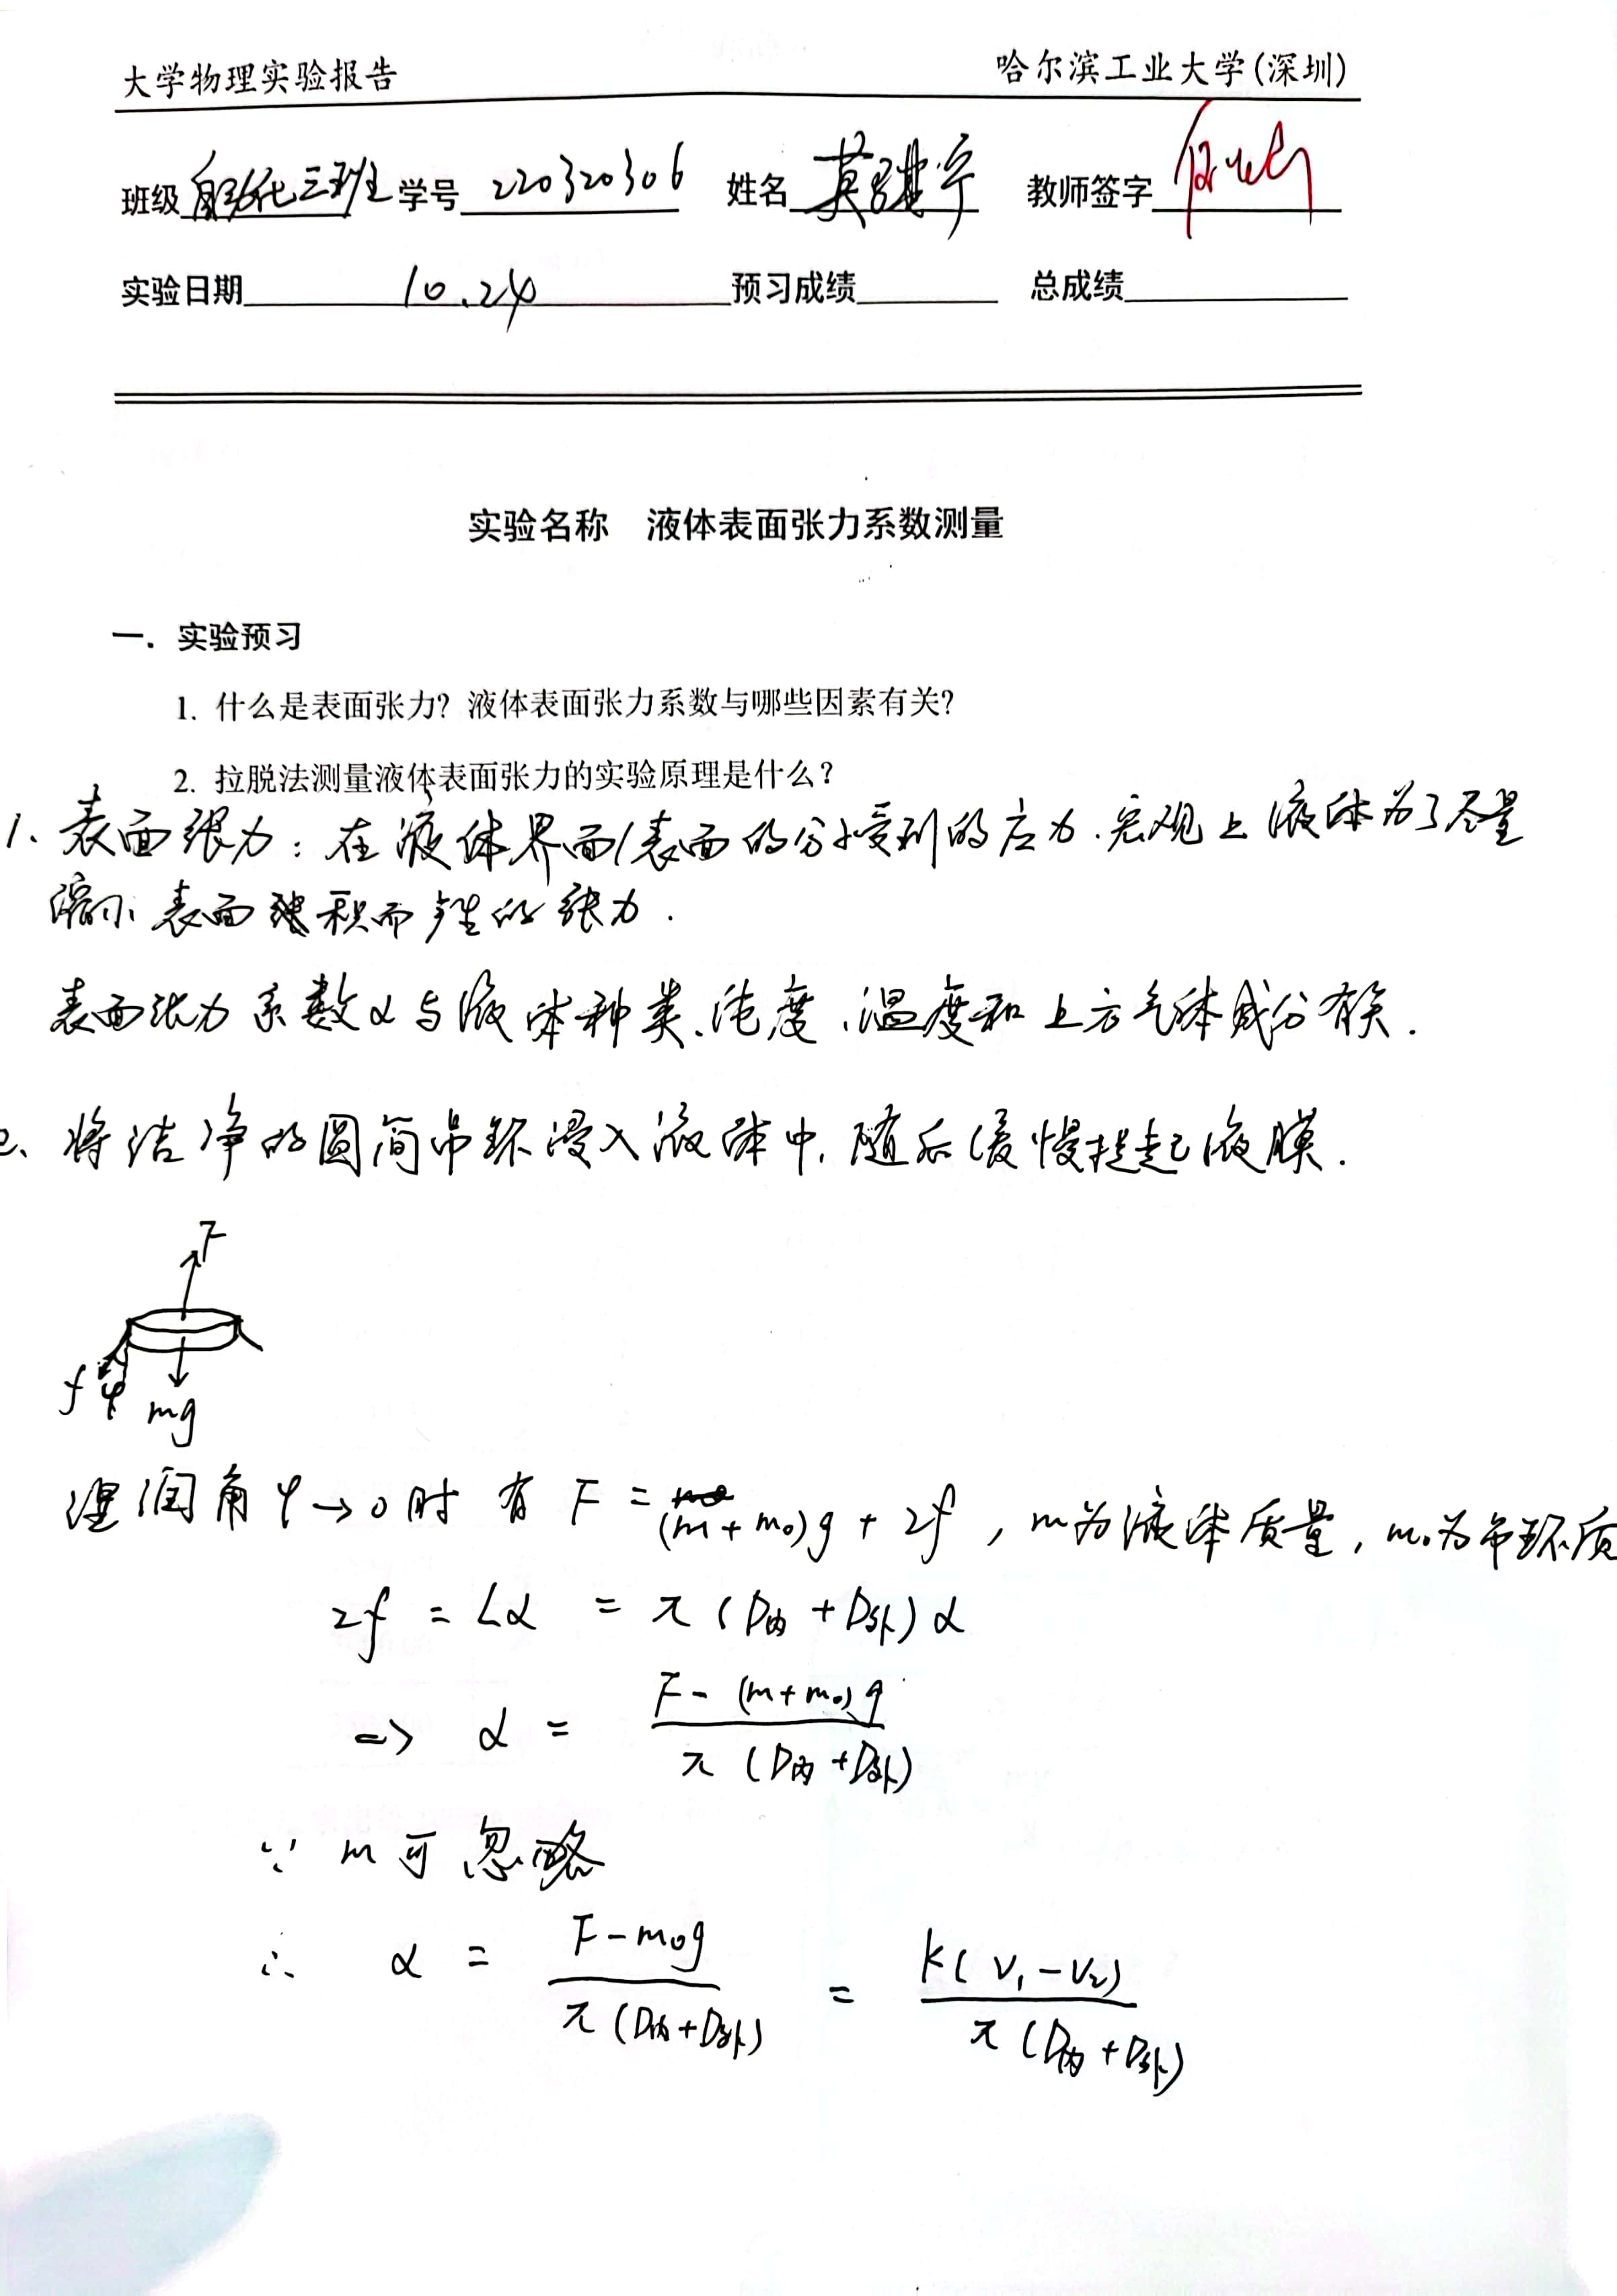 大学物理实验报告 哈尔滨工业大学(深圳)
班级 自动化三班 学号 220320306 姓名 莫 宇 教师签字
实验日期 10.24 预习成绩 总成绩
实验名称 液体表面张力系数测量
一. 实验预习
1. 什么是表面张力? 液体表面张力系数与哪些因素有关?
2. 拉脱法测量液体表面张力的实验原理是什么?
1. 表面张力: 在液体界面/表面的分子受到的应力. 宏观上液体为了尽量
缩小表面积而产生的张力.
表面张力系数α与液体种类、纯度、温度和上方气体成分有关.
2、将洁净的圆筒吊环浸入液体中, 随后缓慢提起液膜.
F
f φ
mg
浸润角φ→0时 有 F = (m+m₀)g + 2f , m为液体质量, m₀为吊环质
2f = Lα = π(D内+D外)α
=> α = \frac{F-(m+m₀)g}{π(D内+D外)}
∵ m可忽略
∴ α = \frac{F-m₀g}{π(D内+D外)} = \frac{k(V₁-V₂)}{π(D内+D外)}